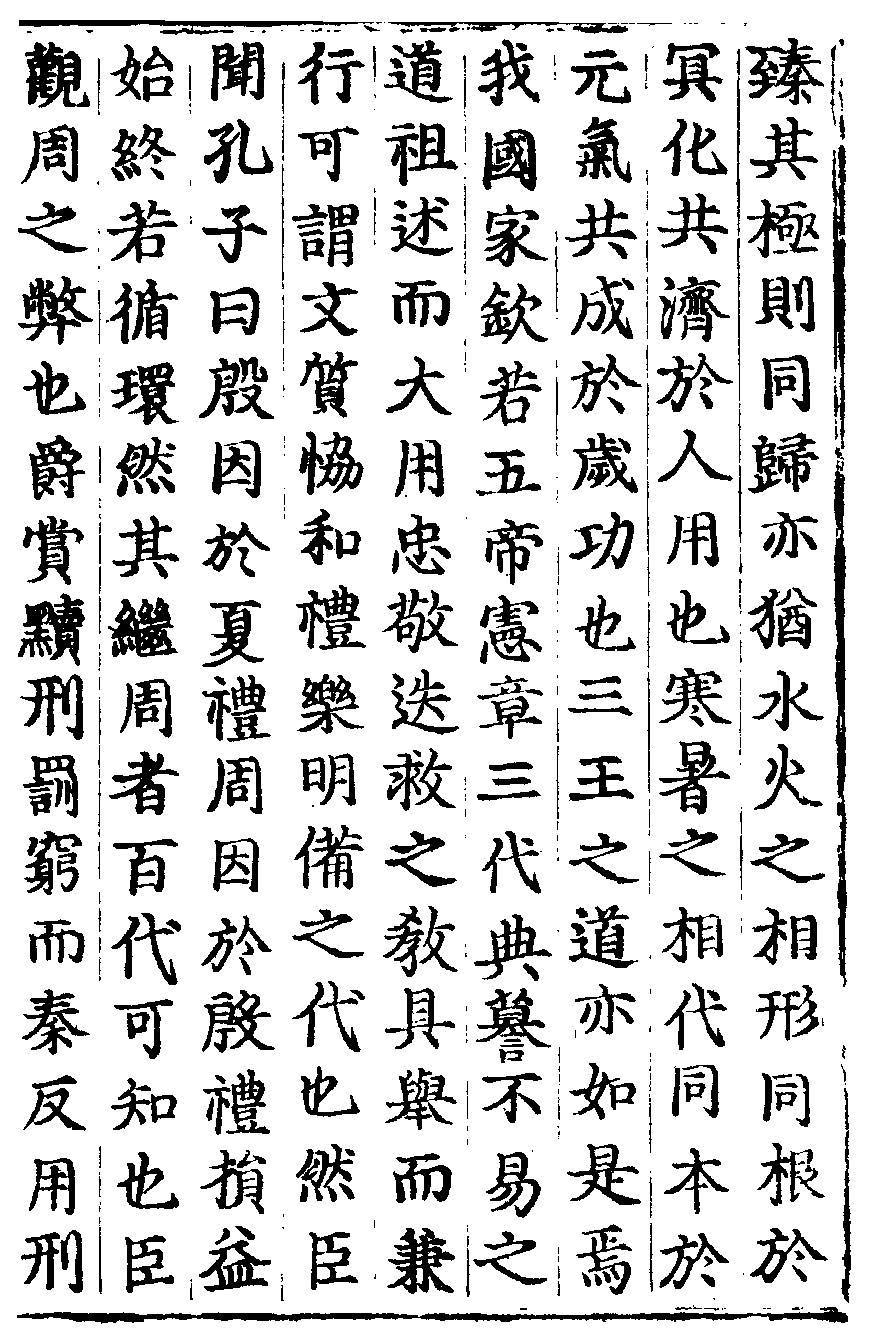 臻其極則同歸亦猶水火之相形同根於
冥化共濟於人用也寒暑之相代同本於
元氣共成於歲功也三王之道亦如是焉
我國家欽若五帝憲章三代典謩不易之
道祖述而大用忠敬迭救之教具舉而兼
行可謂文質恊和禮樂明備之代也然臣
聞孔子曰殷因於夏禮周因於殷禮損益
始終若循環然其繼周者百代可知也臣
觀周之弊也爵賞黷刑罰窮而秦反用刑